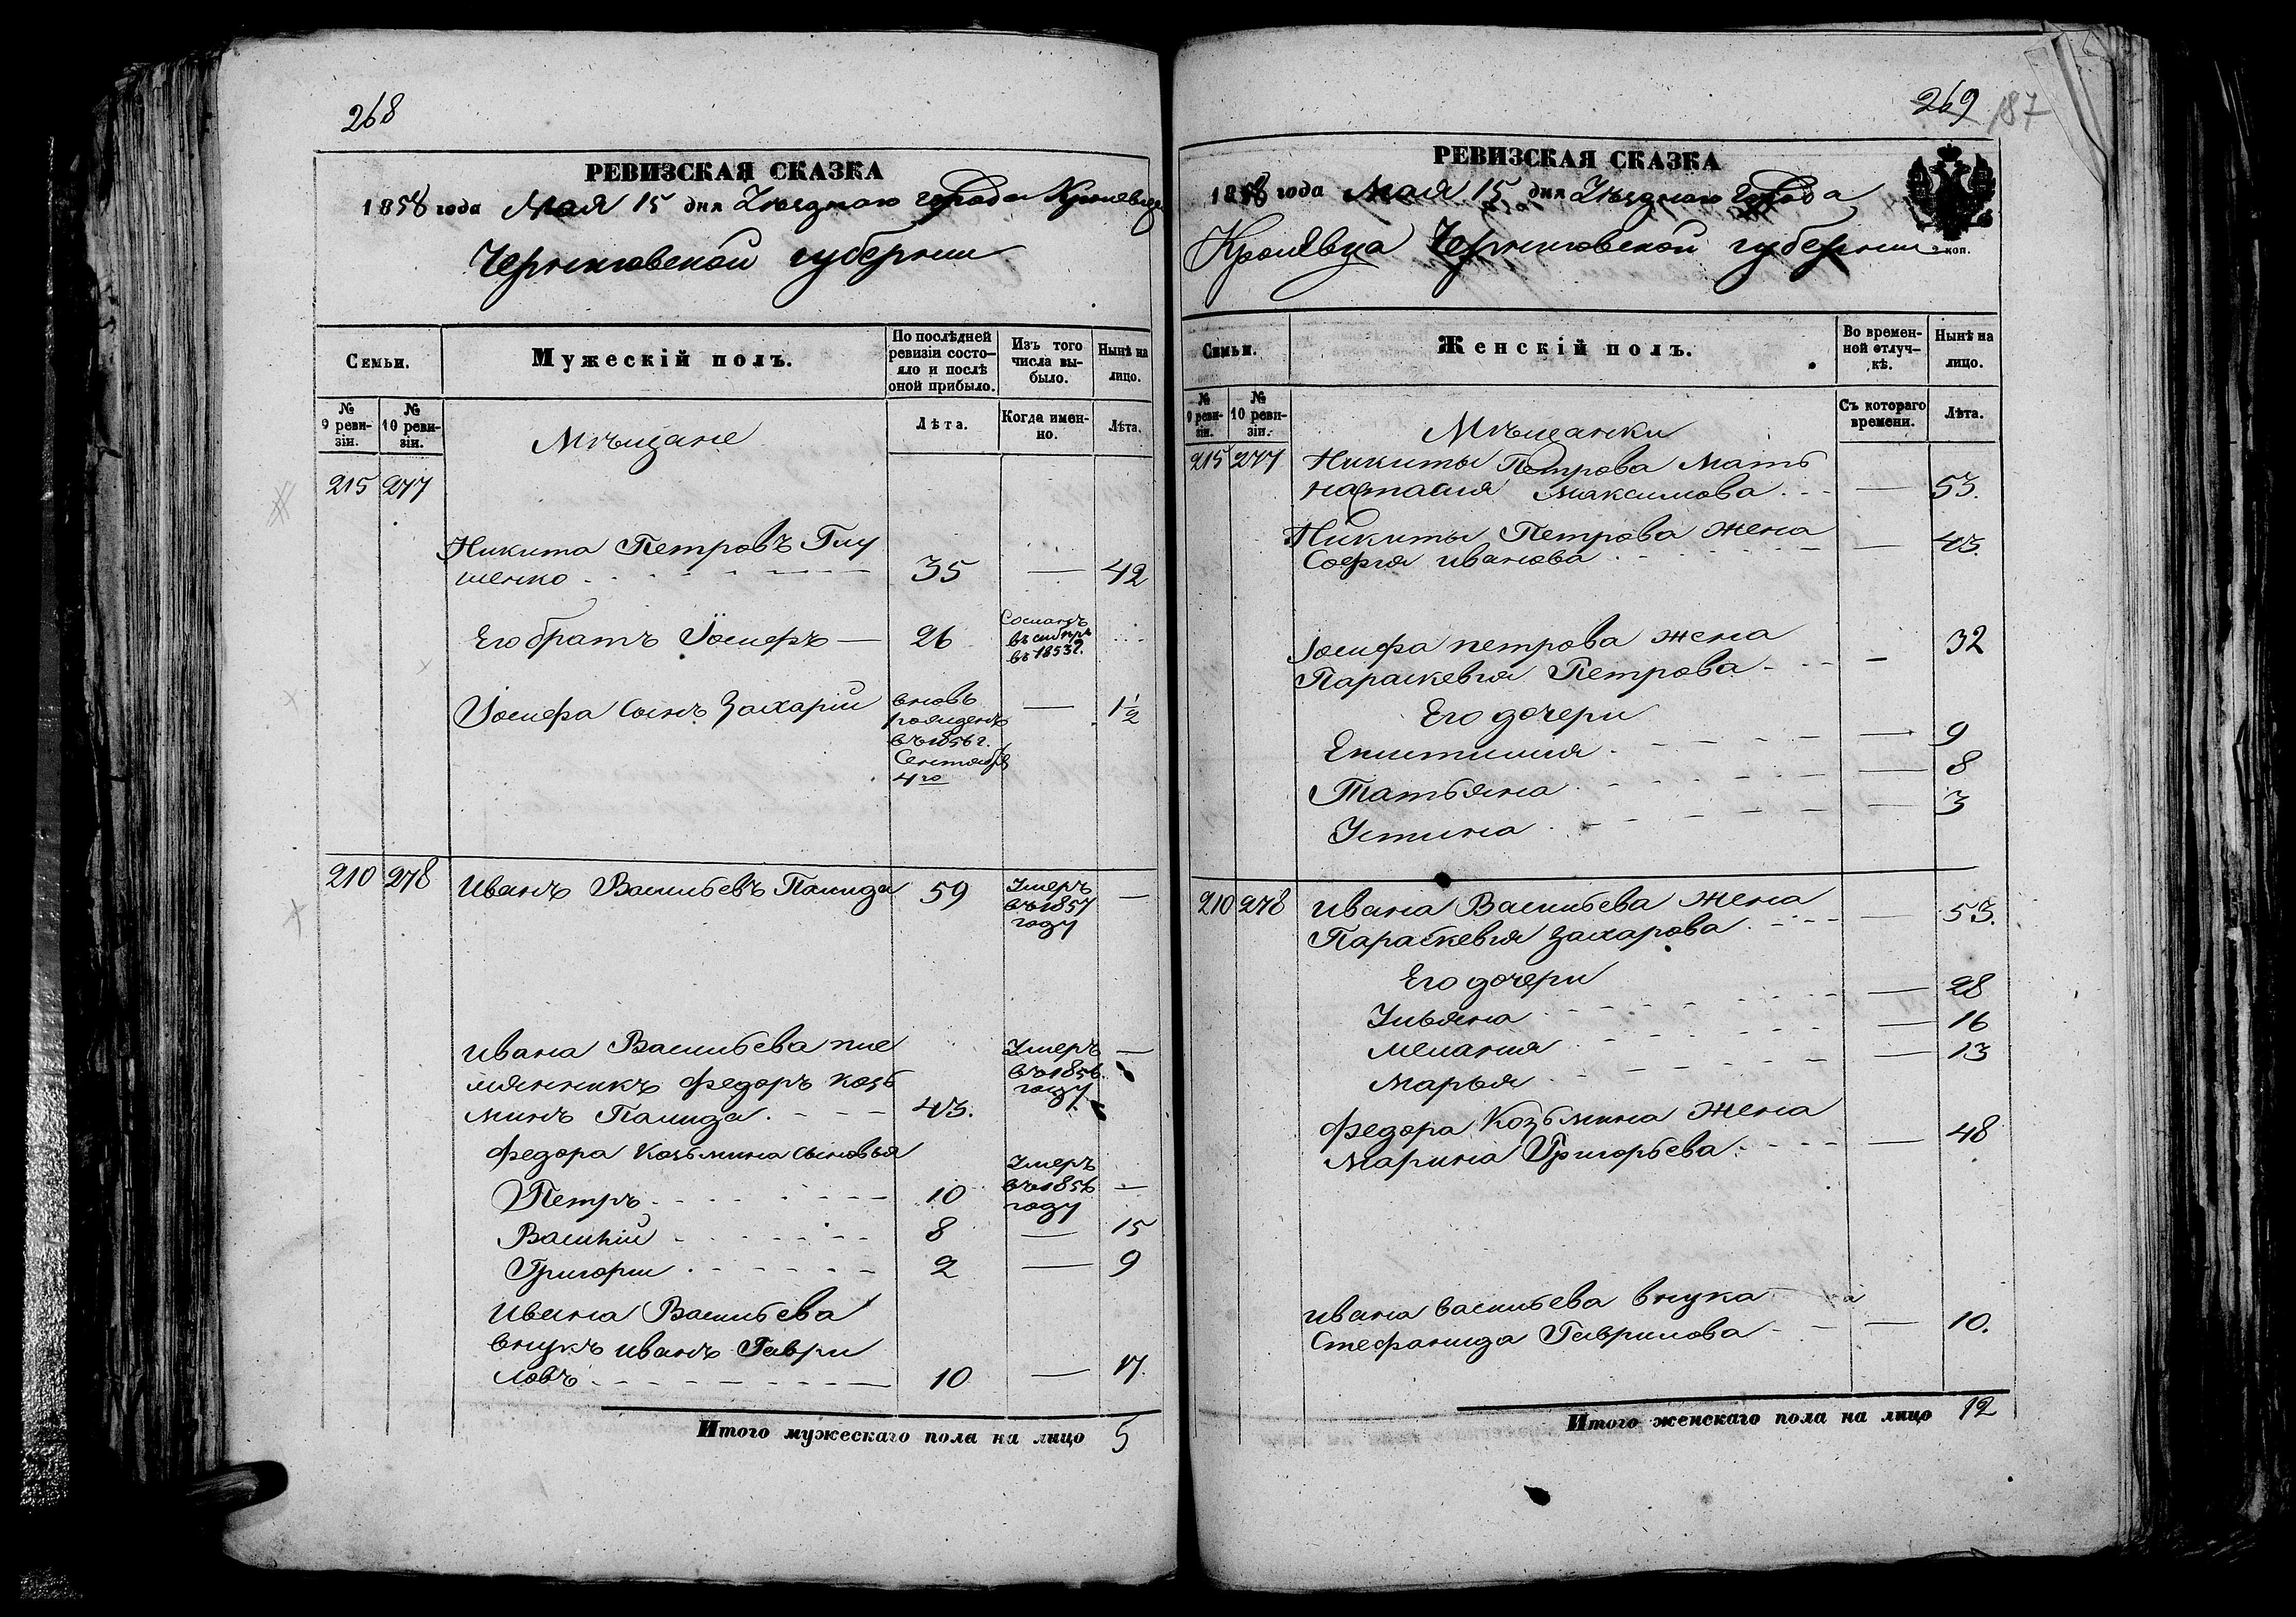 268
РЕВИЗСКАЯ СКАЗКА
1858 года Мая 15 дня Уѣзднаго города Кролевца
Черниговской губернии
Семьи.
Мужескій полъ.
По послѣдней ревизіи состо-
яло и послѣ оной прибыло.
Изъ того числа вы-
было.
Нынѣ на лицо.
№ 9 реви-
зіи.
№ 10 реви-
зіи.
Лѣта.
Когда имен-
но.
Лѣта.
Мѣщане
215 277
Никита Петровъ Глу
шенко 35 — 42
Его братъ Іосифъ — 26 Сосланъ
въ сибирь
въ 1853 г.
Іосифа сынъ Захарій вновь — 1½
рожденъ
въ 1856 г.
Сентября
4го
210 278 Иванъ Васильевъ Палида 59 Умеръ —
въ 1857
году
Ивана Васильева пле
мянникъ Федоръ Козь
минъ Палида 43. Умеръ —
въ 1856
году
Федора Козьмина сыновья
Петръ 10 Умеръ —
въ 1856
году
Василій 8 — 15
Григорий 2 — 9
Ивана Васильева
внукъ Иванъ Гаври
ловъ 10 — 17.
Итого мужескаго пола на лицо 5
269 187
РЕВИЗСКАЯ СКАЗКА
1858 года Мая 15 дня Уѣзднаго города
Кролевца Черниговской губернии
коп.
Семьи.
Женскій полъ.
Во времен-
ной отлуч-
кѣ.
Нынѣ на лицо.
№ 9 реви-
зіи.
№ 10 реви-
зіи.
Съ котораго времени.
Лѣта.
Мѣщанки
215 277 Никиты Петрова Мать
Наталия Максимова — 53.
Никиты Петрова жена
София Иванова — 43.
Іосифа петрова жена
Параскевия Петрова — 32
Его дочери
Епистимия — 9
Татьяна — 8
Устина — 3
210 278 Ивана Васильева жена
Параскевия Захарова — 53.
Его дочери
Ульяна — 28
Мелания — 16
Марья — 13
Федора Козьмина жена
Марина Григорьева — 48
Ивана Васильева внука
Стефанида Гаврилова — 10.
Итого женскаго пола на лицо 12